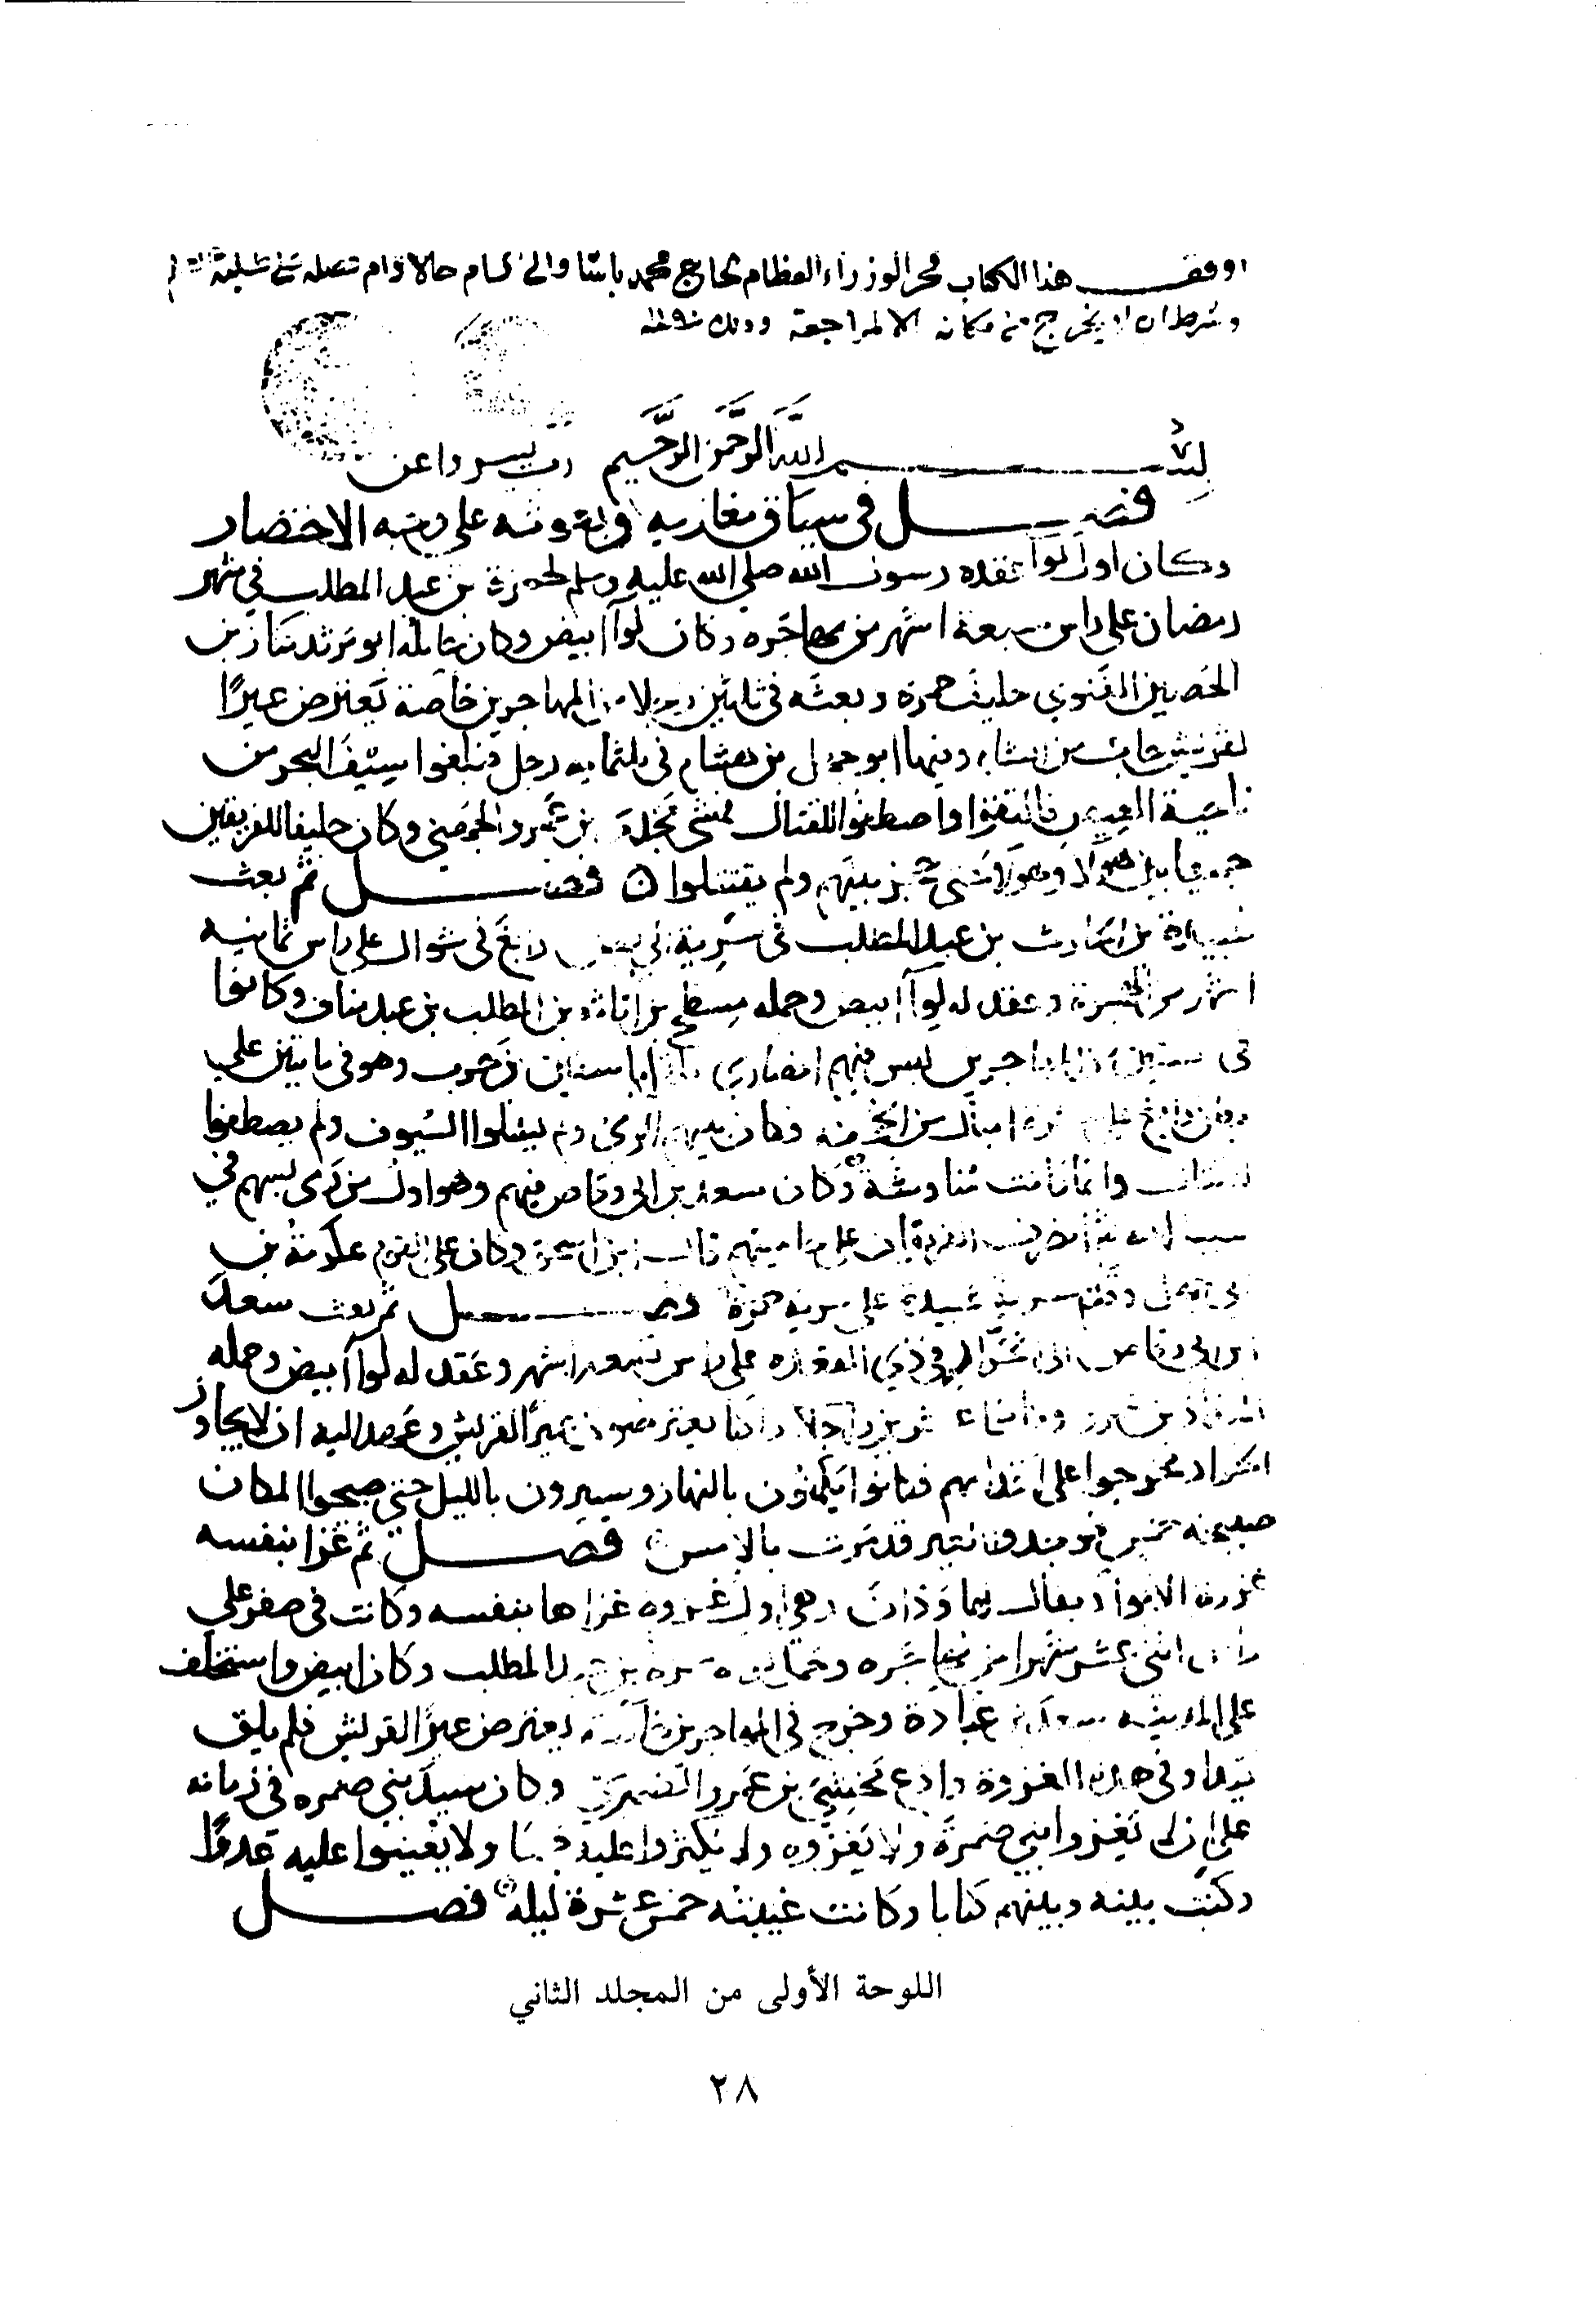 اوقف هذا الكتاب فخر الوزراء العظام الحاج محمد باشا والي الشام حالا دام
وشرط ان لا يخرج من مكانه الا لمراجعة وذلك
بسم الله الرحمن الرحيم رب يسر واعن
فصل في سياق مغازيه وبعوثه على وجه الاختصار
وكان اول لوآ عقده رسول الله صلى الله عليه وسلم لحمزة بن عبد المطلب في شهر
رمضان على راس سبعة اشهر من مهاجَره وكان لوآ ابيض وكان حامله ابو مَرثد كناز بن
الحُصَين الغَنَوي حليف حمزة وبعثه في ثلثين رجلا من المهاجرين خاصة يَعترض عيرًا
لقريش جات من الشام وفيها ابو جهل بن هشام في ثلثمايه رجل فبلغوا سِيْفَ البحر من
ناحية العيص فالتقوا واصطفوا للقتال فمشى مَجْدي بن عَمرو الجهَني وكان حليفا للفريقين
جميعا بين هولا وهولا حتى حجز بينهم ولم يقتتلوا فصل ثم بعث
عبيدة بن الحارث بن عبد المطلب في سَرِية الى بطن رابغ في شوال على راس ثمانيه
اشهر من الهجرة وعقد له لِوآ ابيض وحمله مِسطح بن اثاثة بن المطلب بن عبد مناف وكانوا
في ستين من المهاجرين ليس فيهم انصاري فلقي ابا سفيان بن حرب وهو في مايتين على
بطن رابغ على عشرة اميال من الجحفه وكان بينهم الرمي ولم يسلوا السُيوف ولم يصطفوا
للقتال وانما كانت مُناوشة وكان سعد بن ابي وقاص فيهم وهو اول من رَمى بسهم في
سبيل الله ثم انصرف الفريقان على حاميتهم قال ابن اسحق وكان على القوم عكرمة بن
ابي جهل وقَدَّم سرية عُبيدة على سرية حمزة فصل ثم بعث سعدَ
بن ابي وقاص الى الخَرّار في ذي القعده على راس تسعه اشهر وعَقد له لوآ ابيض وحمله
المقداد بن عمرو وكانوا عشرين راجلا يعترضون عيرًا لقريش وعَهد اليه ان لا يجاوز
الخرار فخرجوا على اقدامهم فكانوا يَكمُنون بالنهار ويسيرون بالليل حتى صبحوا المكان
صبيحة خمس فوجدوا العير قد مَرت بالامس فصل ثم غزا بنفسه
غزوة الابوآ ويقال لها وَدّان وهي اول غزوه غزاها بنفسه وكانت في صفر على
راس اثنى عشر شهرا من مهاجَره وحمل لواه حمزه بن عبد المطلب وكان ابيض واستخلف
على المدينه سعد بن عبادة وخرج في المهاجرين خاصة يعترض عيرًا لقريش فلم يلق
كيدا وفي هذه الغزوة وادع مَخشيَّ بن عَمرو الضمري وكان سيدَ بني ضمره في زمانه
على ان لا تغزوا بني ضَمرَة ولا يَغزوه ولا يُكثروا عليه جمعا ولا يُعينوا عليه عَدوًا
وكتب بينه وبينهم كتابا وكانت غيبته خمس عشرة ليله فصل
اللوحة الأولى من المجلد الثاني
٢٨